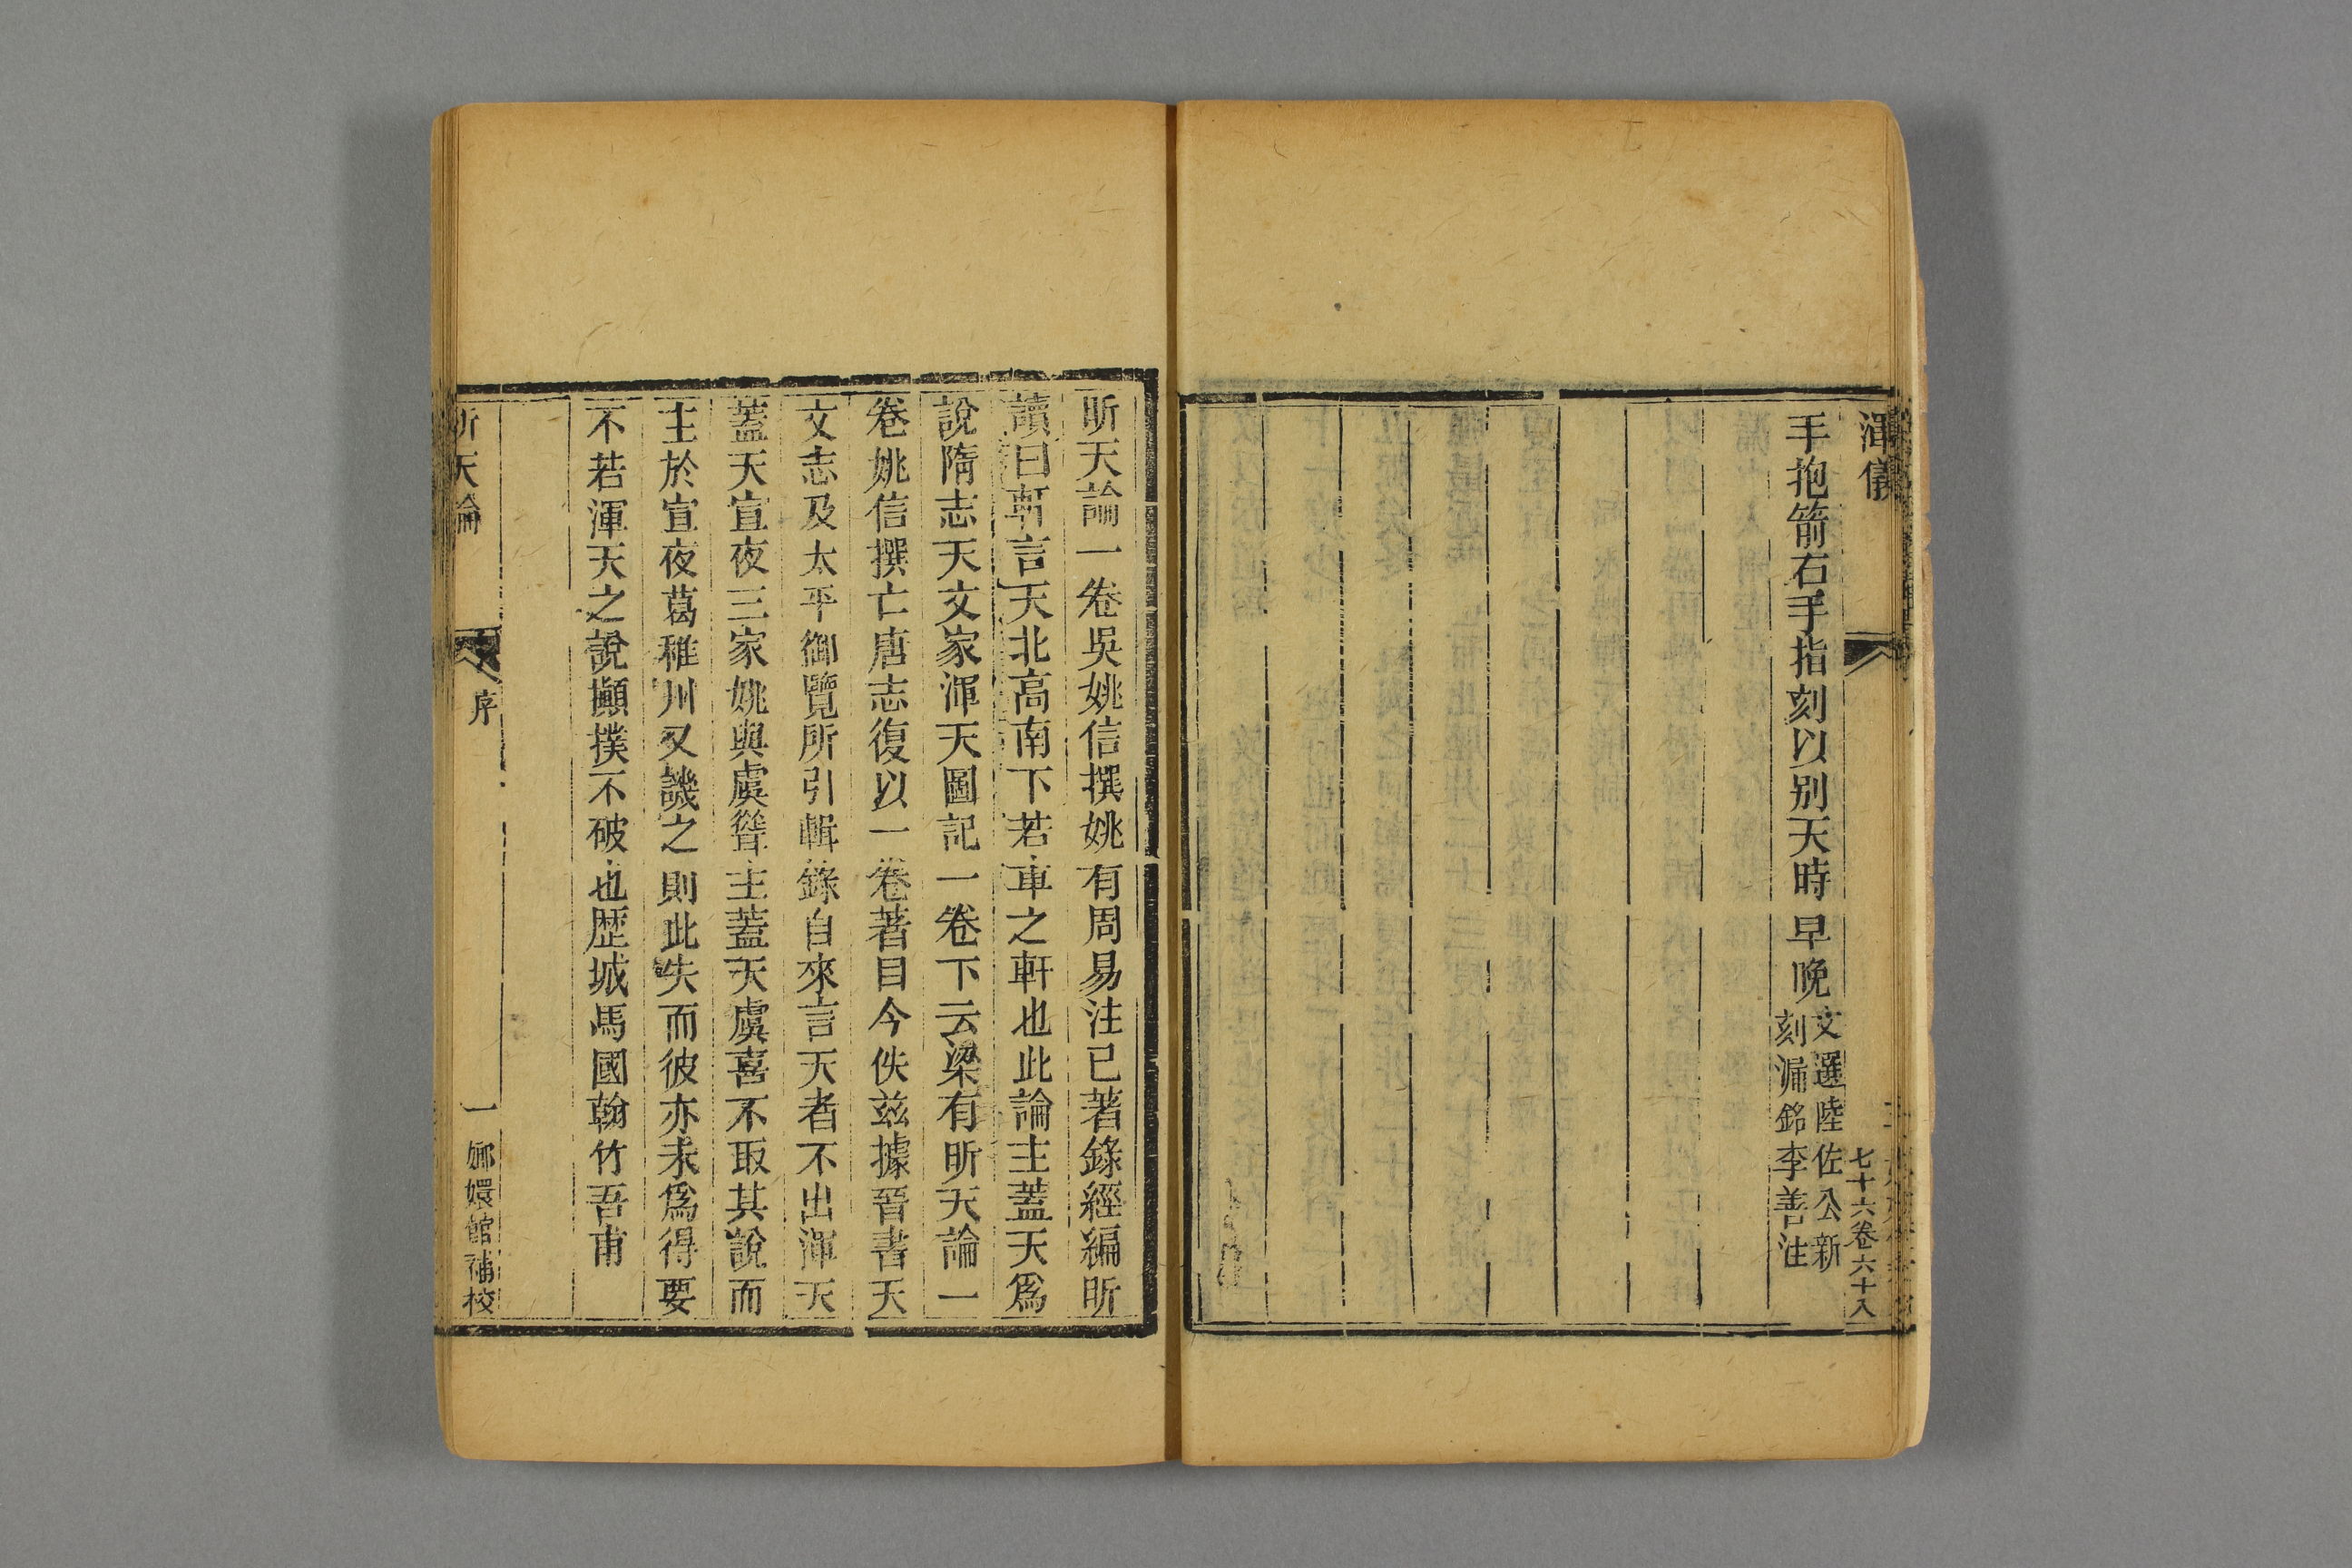 渾儀
七十六卷六十八
手抱箭右手指刻以别天時早晚
文選陸佐公新
刻漏銘李善注
昕天論一卷吳姚信撰姚有周易注已著錄經編昕
讀曰軒言天北高南下若車之軒也此論主蓋天爲
說隋志天文家渾天圖記一卷下云梁有昕天論一
卷姚信撰亡唐志復以一卷著目今佚兹據晉書天
文志及太平御覽所引輯錄自來言天者不出渾天
蓋天宣夜三家姚與虞聳主蓋天虞喜不取其說而
主於宣夜葛稚川又譏之則此失而彼亦未爲得要
不若渾天之說攧撲不破也歷城馬國翰竹吾甫
昕天論
序
一
嫏嬛館補校